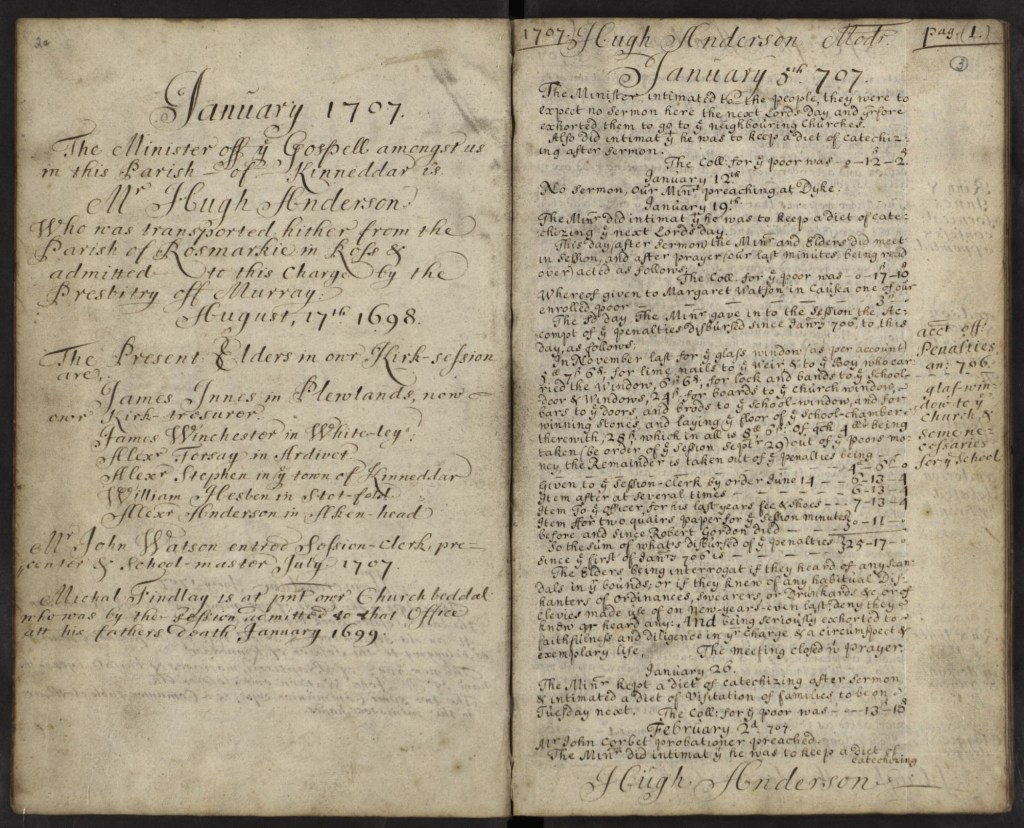 January 1707.
The Minister off ẙ Gospell amongst us
in this Parish of Kinneddar is
Mr Hugh Anderson
Who was transported hither from the
Parish of Rosmarkie in Ross &
admitted to this Charge by the
Presbitry off Murray.
August, 17th 1698.
The Present Elders in owr Kirk-session
are,
James Innes in Plewlands, now
owr Kirk-tresurer
James Winchester in White-leys:
Alexr Forsay in Ardivet
Alexr Stephen in ẙ town of Kinneddar
William Hesben in Stot-fold
Alexr Anderson in Aken-head
Mr John Watson entred Session-Clerk, pre-
center & School-master July 1707
Michal Findlay is at pnt owr Church beddal
who was by the Session admitted to that Office
att his fathers death, January 1699.
1707. Hugh Anderson Modr. pag. (1.)
January 5th 707.
The Minister intimated to the people, they were to
expect no sermon here the next Lords day, and yrfore
exhorted them to go to ẙ neighbouring Churches.
Also did intimat ẙ he was to keep a diet of catechiz-
ing after sermon.
The Coll: for ẙ poor was 0-12-2
January 12th
No sermon, our Minr preaching at Dyke.
January 19th
The Minr did intimat ẙ he was to keep a diet of cate-
chizing ẙ next Lords day.
This day after sermon the Minr and Elders did meet
in session, and after prayer (our last minutes being read
over) acted as follows.
The Coll: for ẙ poor was 0-17-10
Whereof given to Margaret Watson in Causea one of our
enrolled poor
The sd day The Minr gave in to the session the Ac-
compt of ẙ penalties disbursed since Janry 706, to this
day, as follows.
In November last for ẙ glass window (as per account)
5lb 7s 6d, for lime, nails to ẙ weir & to ẙ Boy who car-
ried the window, for lock and bands to ẙ school-
door & windows, 24s for boards to ẙ church window,
bars to ẙ doors, and brods to ẙ school-window, and for
winning stones and laying ẙ floor of ẙ school-chamber
therewith, 28s, which in all is of qch being
taken (be order of ẙ session Septr 29) out of ẙ poors mo-
ney, the Remainder is taken out of ẙ penalties being
Given to ẙ Session-Clerk by order June 14 6-13-4
Item after at several times 6-13-4
Item To ẙ Officer, for his last years fee & shoes 7-13-4
Item ffor two quairs paper for ẙ session minutes 0-11-
before, and since Robert Gordon died
So the sum of what's disbursed of ẙ penalties 25-17-0
since ẙ first of Janry 706 is
The Elders being interrogat if they heard of any scan-
dals in ẙ bounds, or if they knew of any habitual Dis-
hanters of ordinances, swearers, or Drunkards &c, or of
Clevies made use of on New-years-even last, deny they
knew or heard any: And being seriously exhorted to
faithfulness and diligence in yr charge & a circumspect &
exemplary life, The meeting closed wt prayer.
January 26.
The Minr kept a diet of catechizing after sermon
& intimated a diet of Visitation of families to be on
Tuesday next. The Coll: for ẙ poor was 13-10
February 2d 707
Mr John Corbet probationer preached.
The Minr did intimat ẙ he was to keep a diet of
catechizing
Hugh Anderson
acct off
Penalties
an: 706.
glas-win-
dow to ẙ
Church &
some ne-
cessaries
for ẙ school